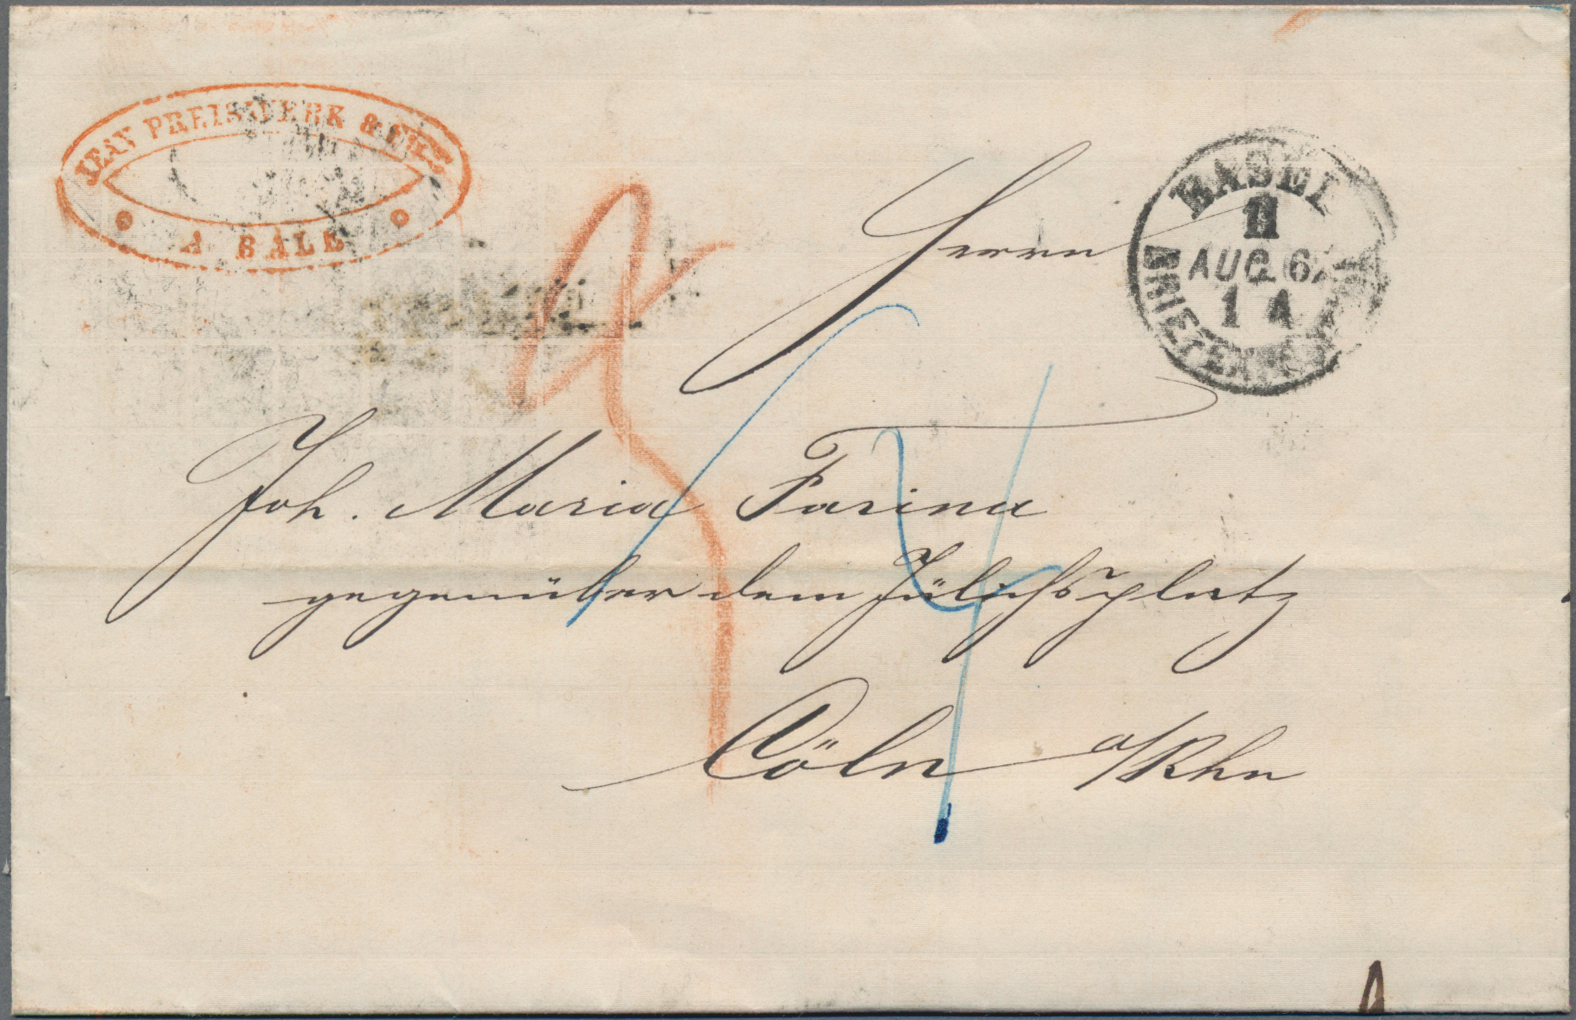 JEAN PREISWERK & FILS
A BALE
BASEL
11
AUG 67
1 A
BRIEFEXPED
Herrn
Joh. Maria Farina
gegenüber dem Jülichsplatz
Cöln a/Rhn